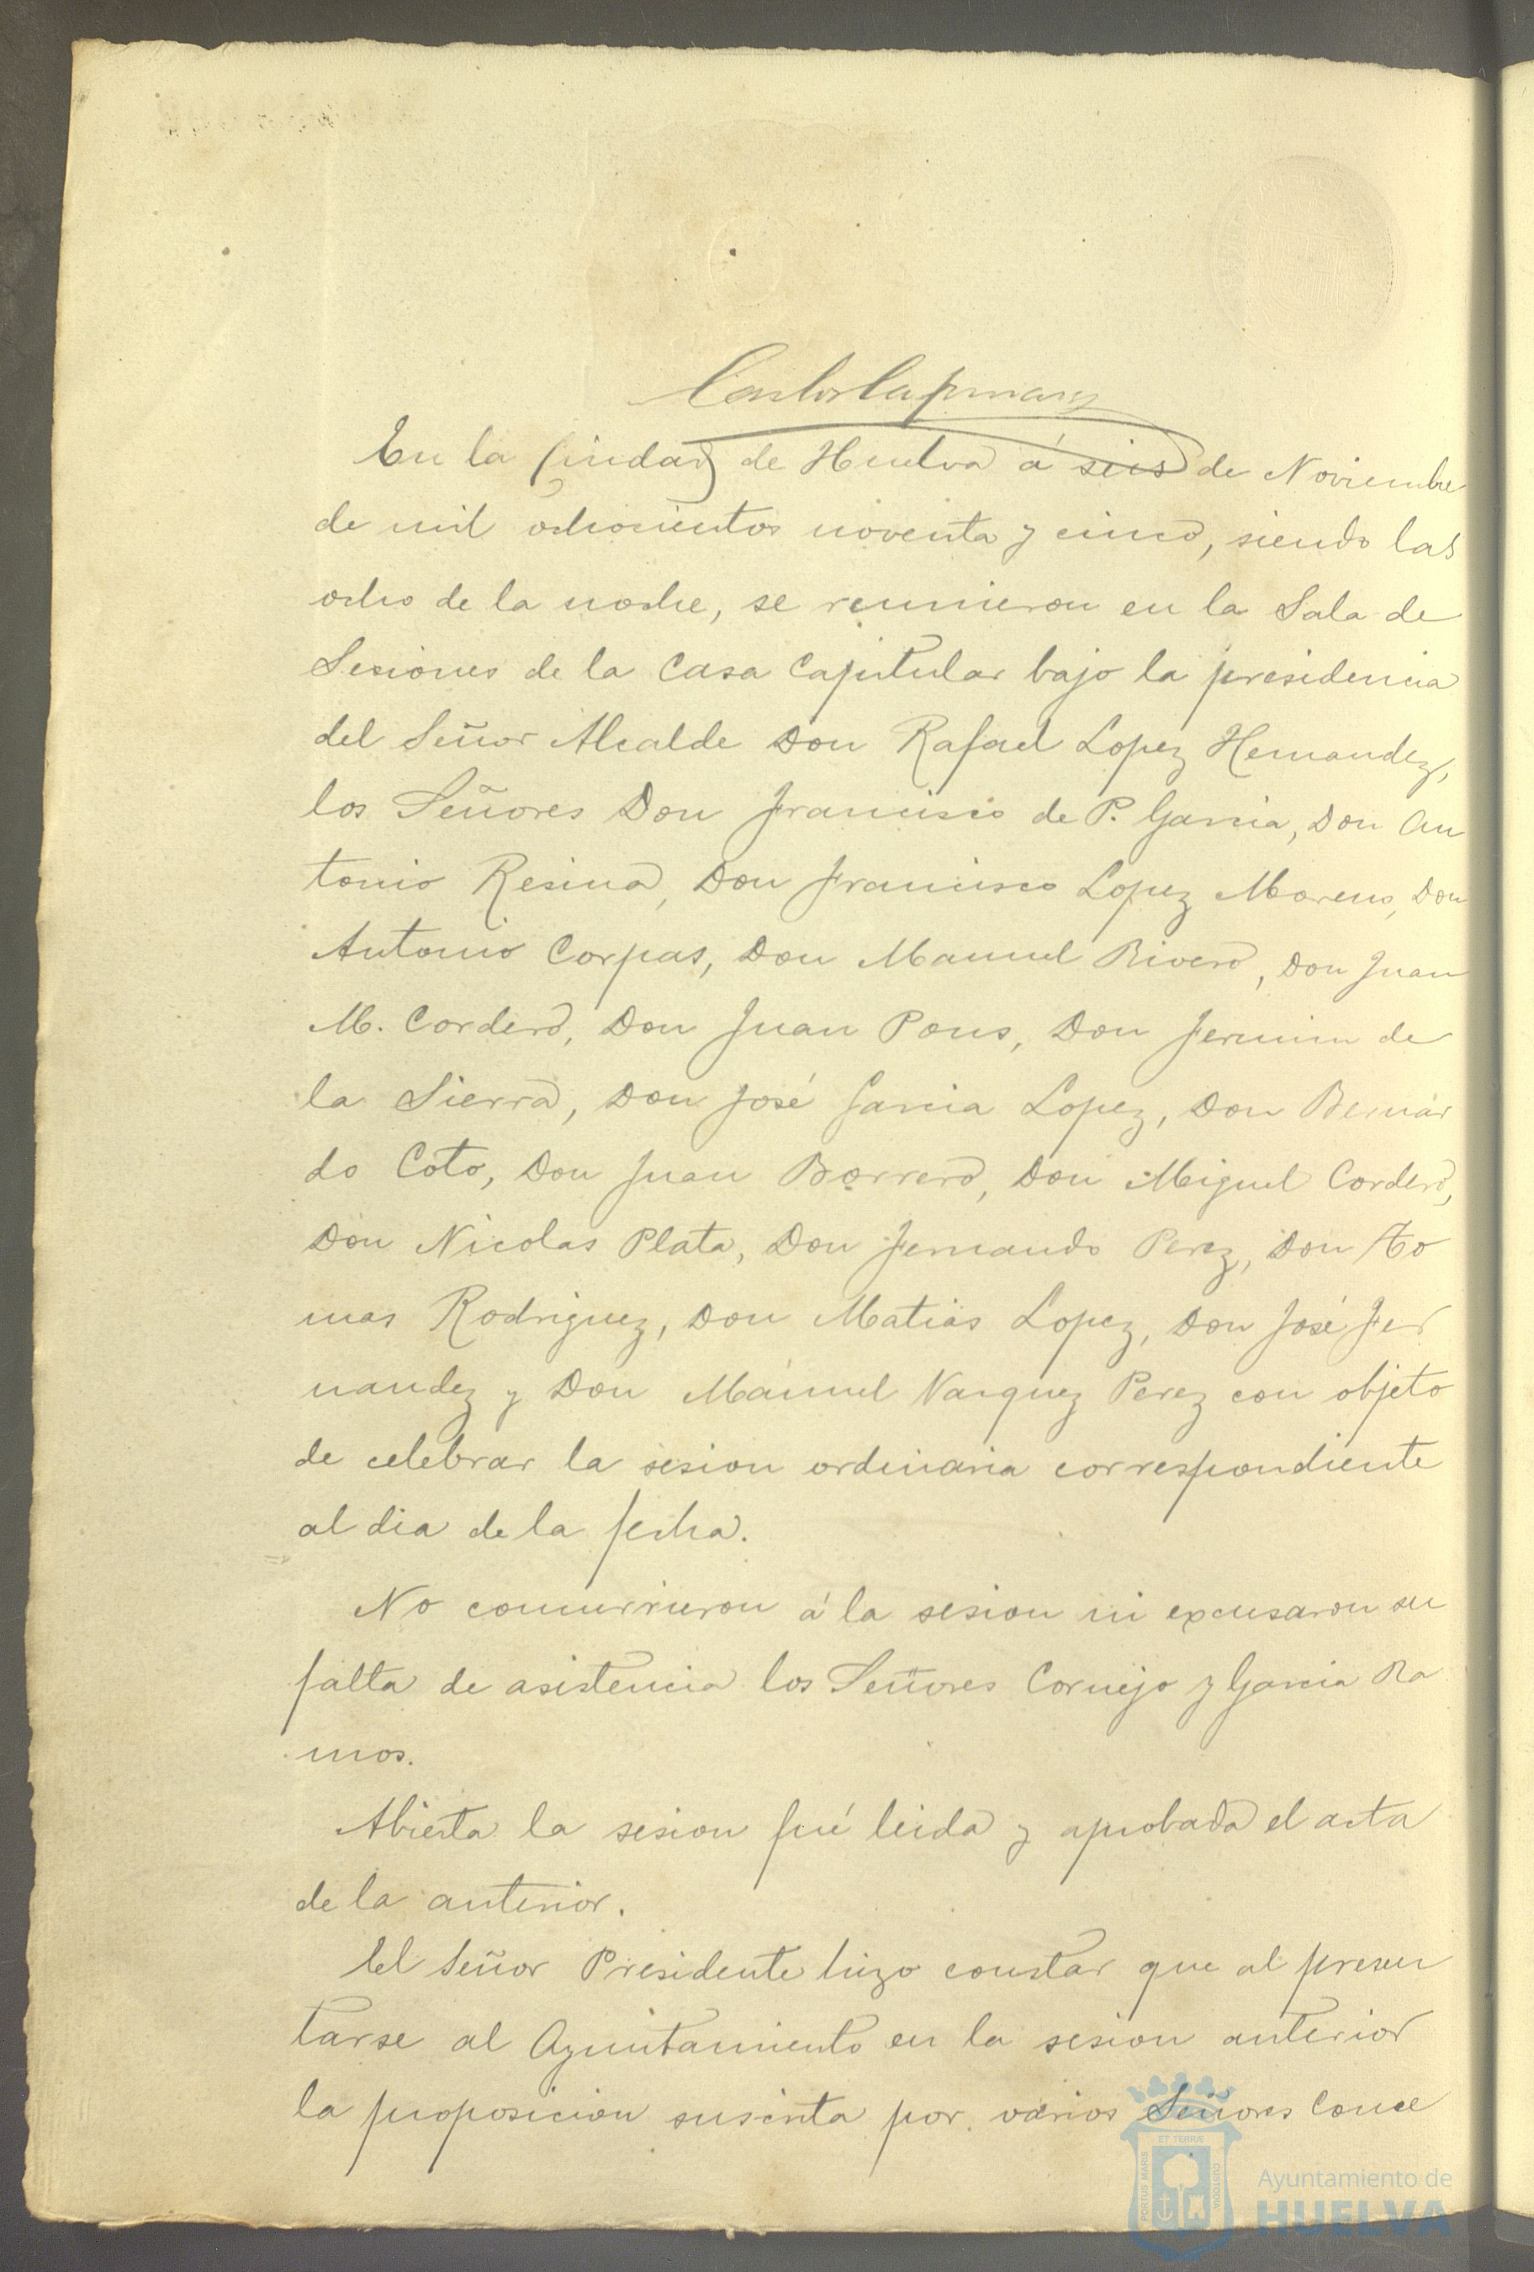 En la Ciudad de Huelva á seis de Noviembre
de mil ochocientos noventa y cinco, siendo las
ocho de la noche, se reunieron en la Sala de
Sesiones de la Casa Capitular bajo la presidencia
del Señor Alcalde Don Rafael Lopez Hernandez,
los Señores Don Francisco de P. Garcia, Don An
tonio Resina, Don Francisco Lopez Moreno, Don
Antonio Corpas, Don Manuel Rivero, Don Juan
M. Cordero, Don Juan Pons, Don Fermin de
la Sierra, Don José Garcia Lopez, Don Bernar
do Coto, Don Juan Borrero, Don Miguel Cordero,
Don Nicolas Plata, Don Fernando Perez, Don To
mas Rodriguez, Don Matias Lopez, Don José Fer
nandez y Don Manuel Vazquez Perez con objeto
de celebrar la sesion ordinaria correspondiente
al dia de la fecha.
No concurrieron á la sesion ni excusaron su
falta de asistencia los Señores Cornejo y Garcia Ra
mos.
Abierta la sesion fué leida y aprobada el acta
de la anterior.
El Señor Presidente hizo constar que al presen
tarse al Ayuntamiento en la sesion anterior
la proposicion suscrita por varios Señores Conce
PORTUS MARIS ET TERRÆ CUSTODIA
Ayuntamiento de
HUELVA